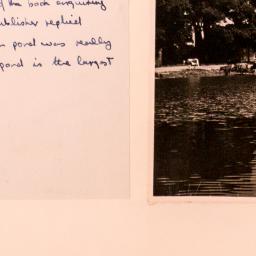 of the book enquiring
publisher replied
pond was really
pond is the largest